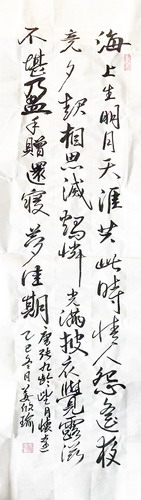 海上生明月天涯共此時情人怨遙夜
竟夕起相思滅燭憐光滿披衣覺露滋
不堪盈手贈還寢夢佳期
唐張九齡望月懷遠
乙巳冬月